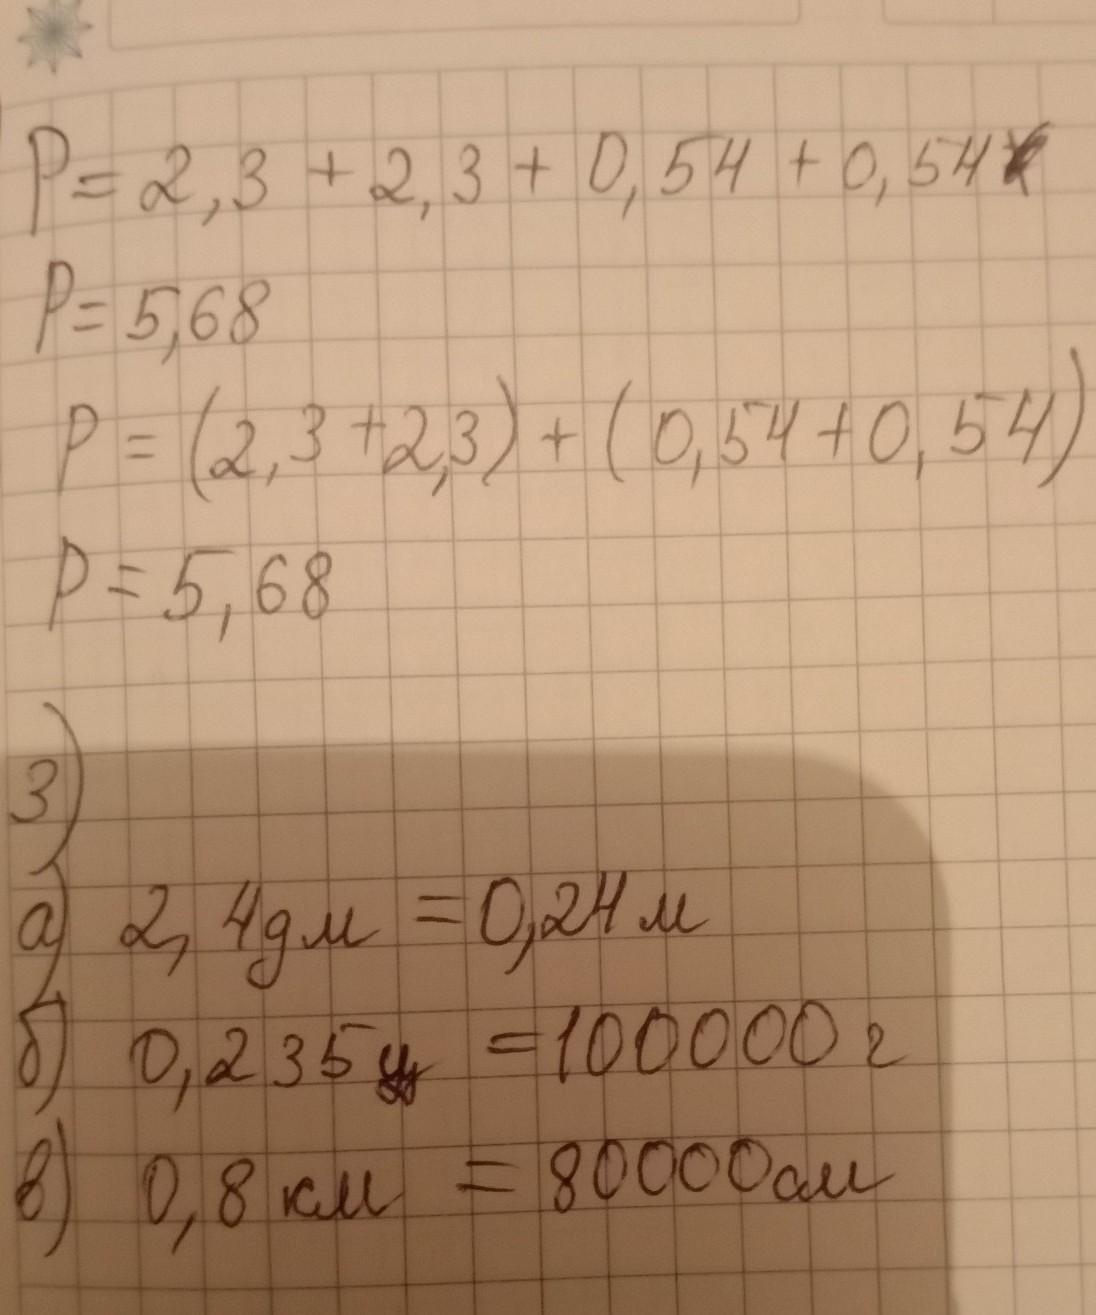 P = 2,3 + 2,3 + 0,54 + 0,54
P = 5,68
P = (2,3 + 2,3) + (0,54 + 0,54)
P = 5,68
3)
а) 2,4 дм = 0,24 м
б) 0,235 ц = 100000 г
в) 0,8 км = 80000 см